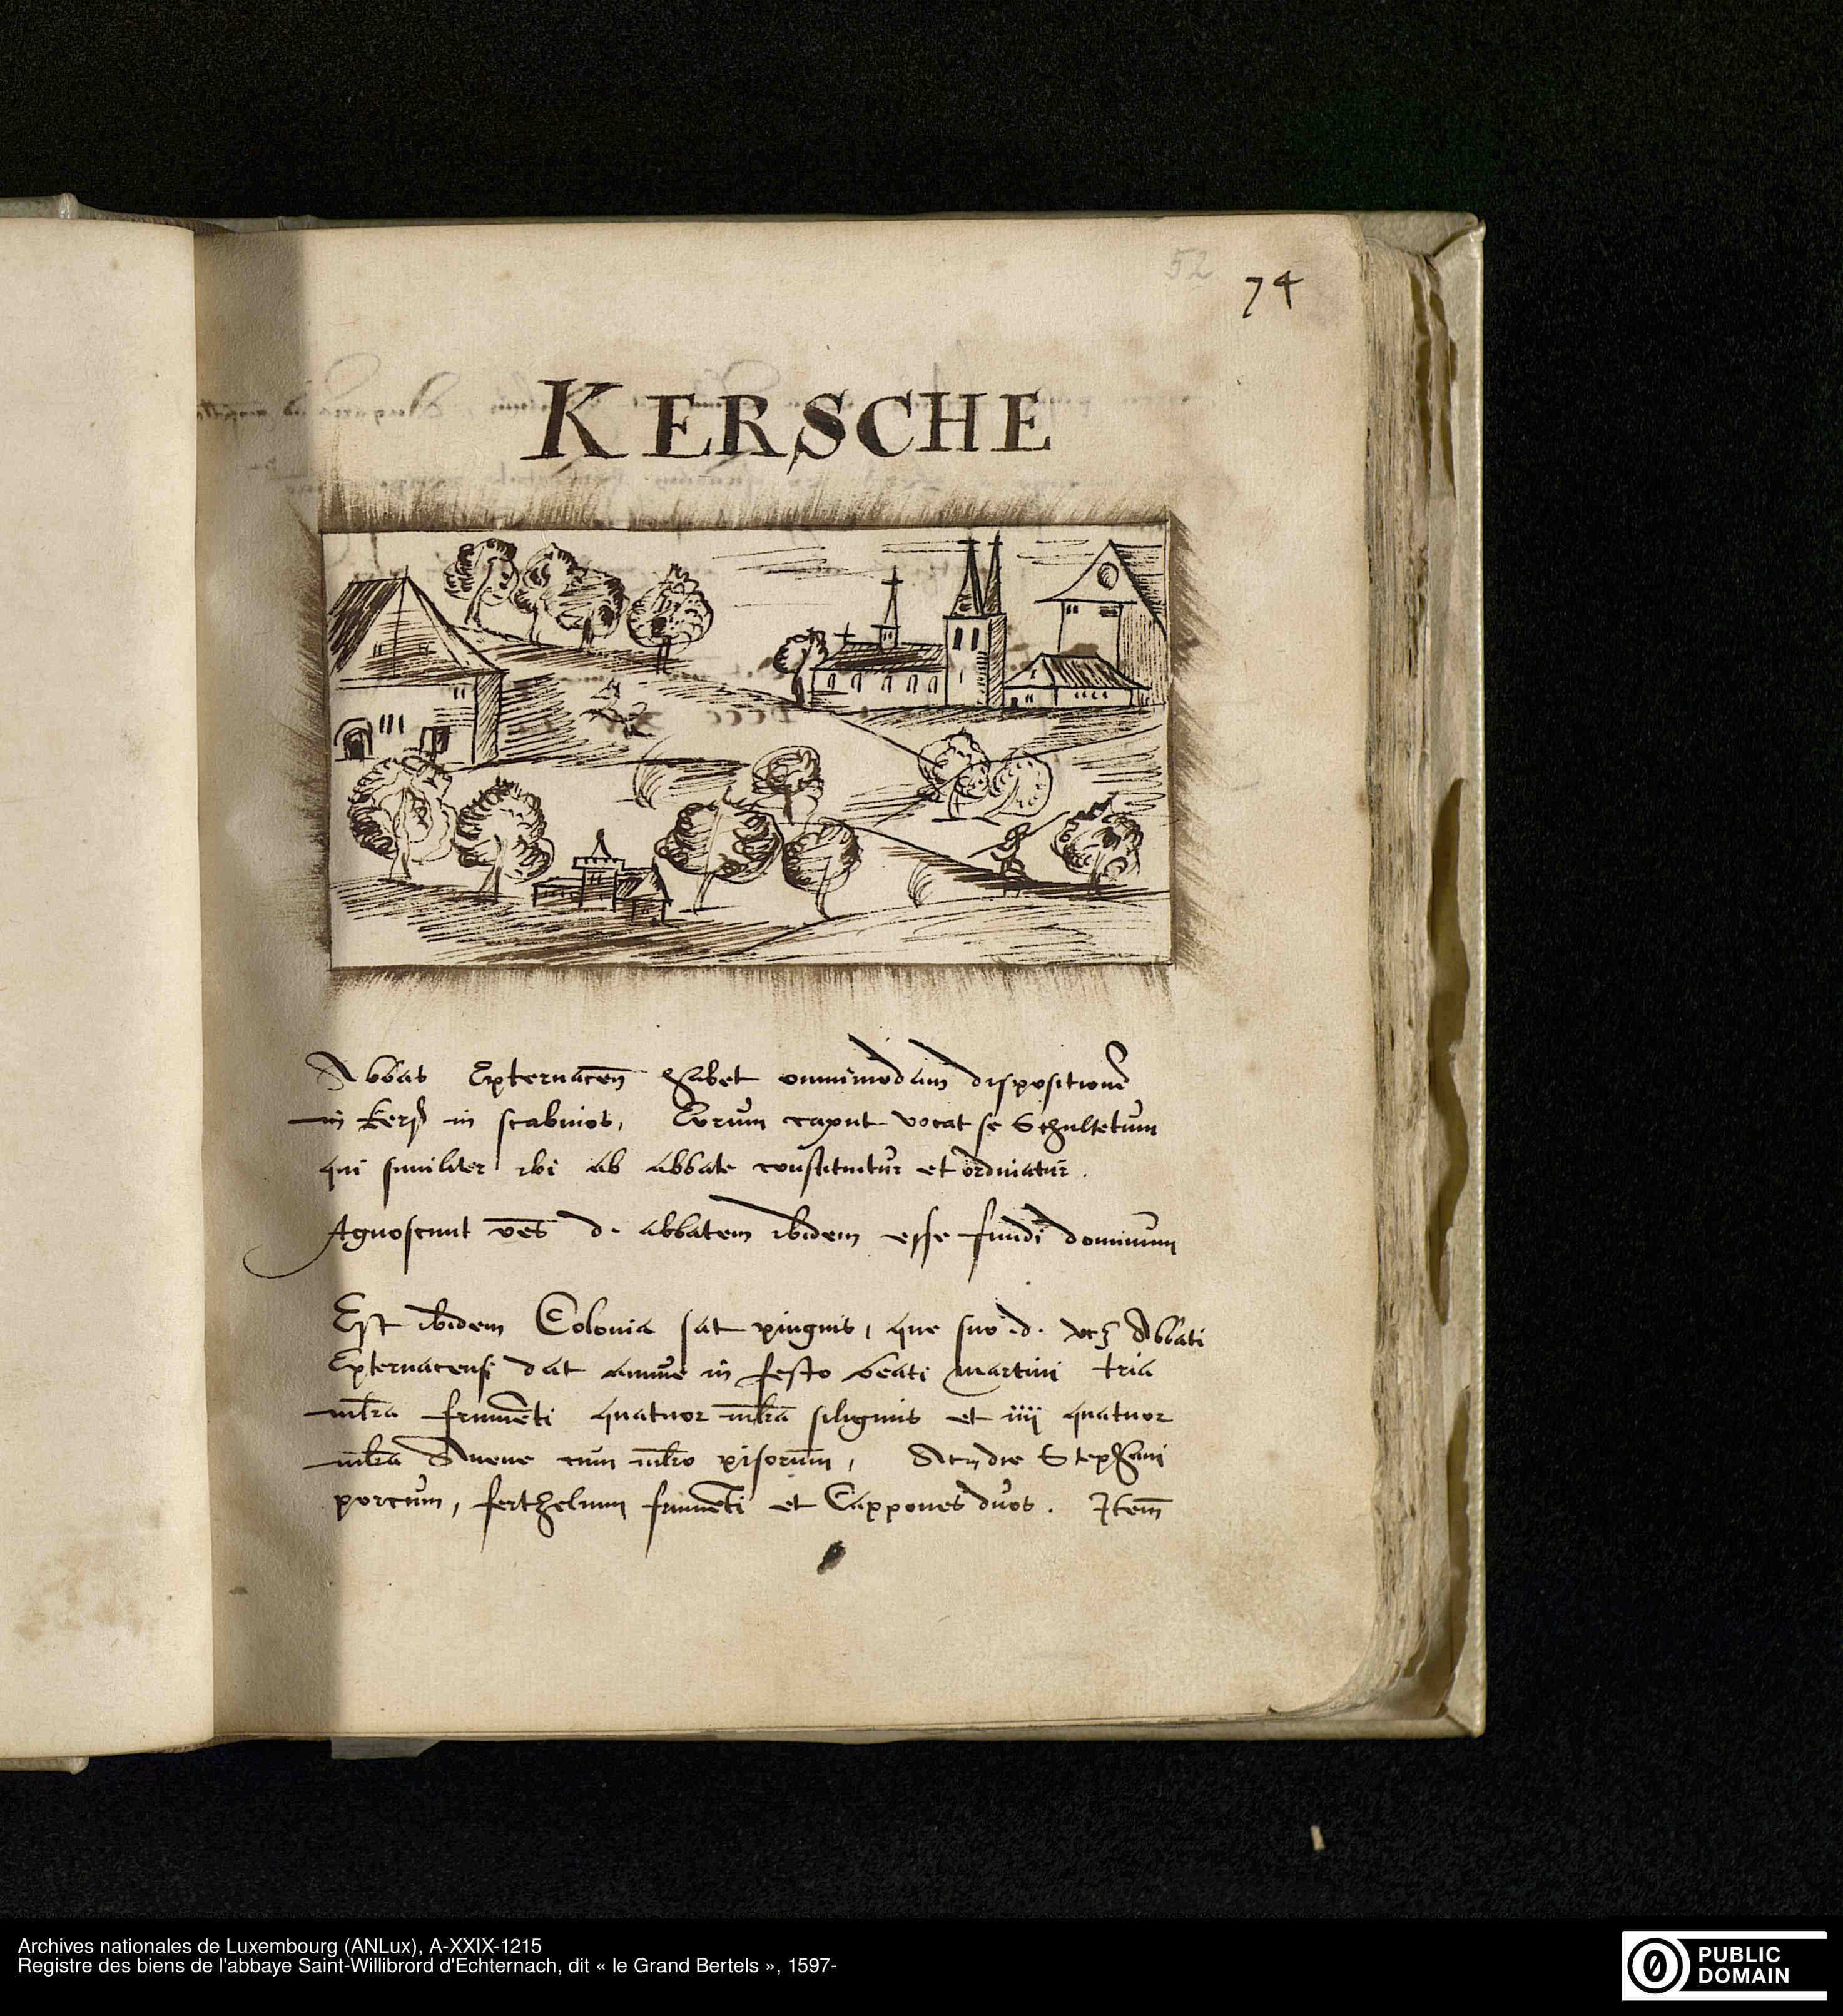 52
74
KERSCHE
Abbas Epternacen̄ habet omnimodam dispositionē
in Kersch in scabinos, Eorum caput vocat se Schultetum
qui similiter ibi ab abbate constituitur et ordinatur.
Agnoscunt d. abbatem ibidem esse fundi dominum
Est ibidem Colonia sat pinguis, que suo d. Abbati
Epternacensi dat annue in festo beati Martini tria
mlra frumēti quatuor mlra siliginis et iiij quatuor
mlra Avene cum mlro pisorum, Stephani
porcum, ferthelium frumēti et Cappones duos. Item
Archives nationales de Luxembourg (ANLux), A-XXIX-1215
Registre des biens de l'abbaye Saint-Willibrord d'Echternach, dit « le Grand Bertels », 1597-
PUBLIC
DOMAIN